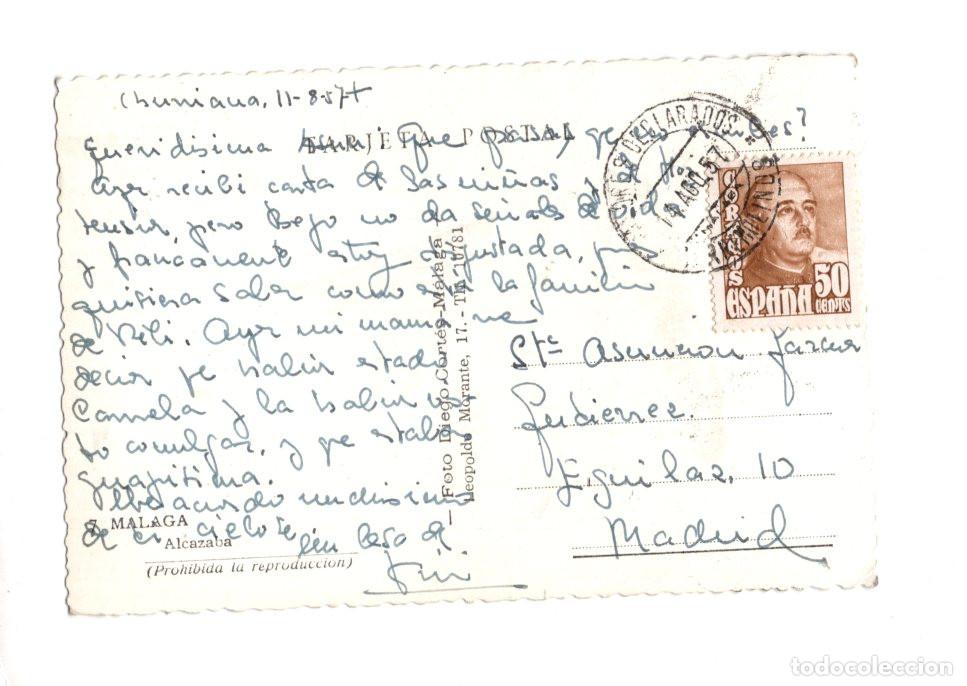 Churriana, 11-8-57
TARJETA POSTAL
Queridisima que pasa, que no escribes?
Ayer recibi carta de las niñas y de
pero Bego no da señales de vida
y francamente estoy disgustada, pues
quisiera saber como esta la familia
de Pili. Ayer mi mama me
decia que habia estado
Carmela y la habia visto
comulgar, y que estaba
guapisima.
Me acuerdo muchisimo
de ti
5 MALAGA
Alcazaba
(Prohibida la reproducción)
Foto Diego Cortés-Málaga
Leopoldo Morante, 17. - Tlf. 10781
VALORES DECLARADOS
AGO. 57
CORREOS
ESPAÑA 50
CENTS
Sta Asuncion
Gutierrez.
Eguilaz, 10
Madrid
todocoleccion